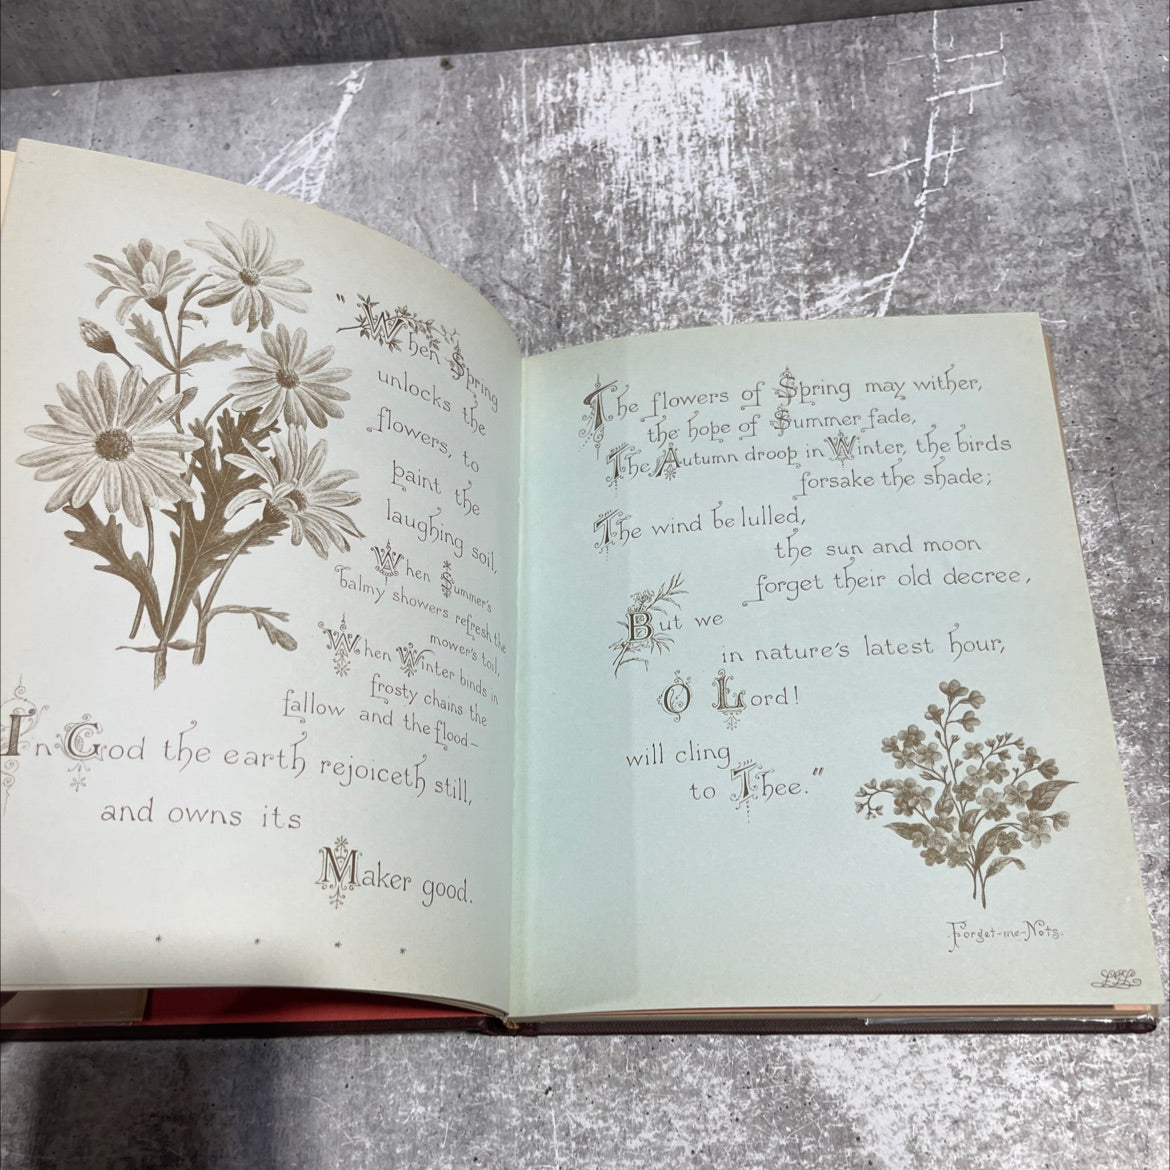 "When Spring
unlocks the
flowers, to
paint the
laughing soil,
When Summer's
balmy showers refresh the
mower's toil,
When Winter binds in
frosty chains the
fallow and the flood—
In God the earth rejoiceth still,
and owns its
Maker good.
* * * *
The flowers of Spring may wither,
the hope of Summer fade,
The Autumn droop in Winter, the birds
forsake the shade;
The wind be lulled,
the sun and moon
forget their old decree,
But we
in nature's latest hour,
O Lord!
will cling
to Thee."
Forget-me-Nots.